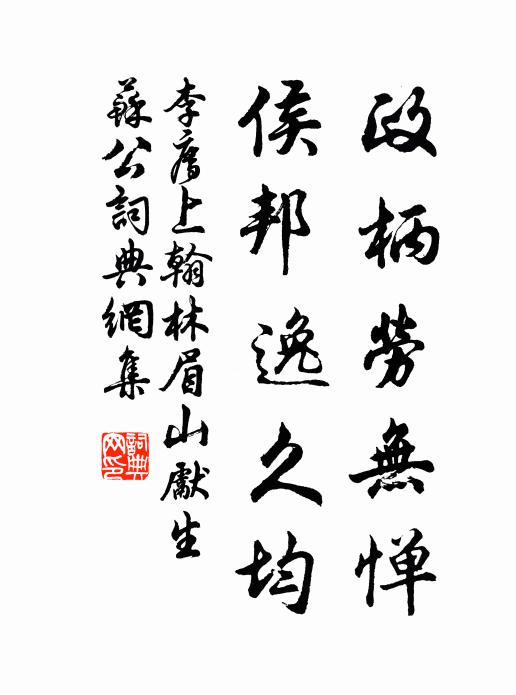 政柄勞無惮
侯邦逸久均
李廌上翰林眉山獻生
蘇公詞典網集
詞典網印